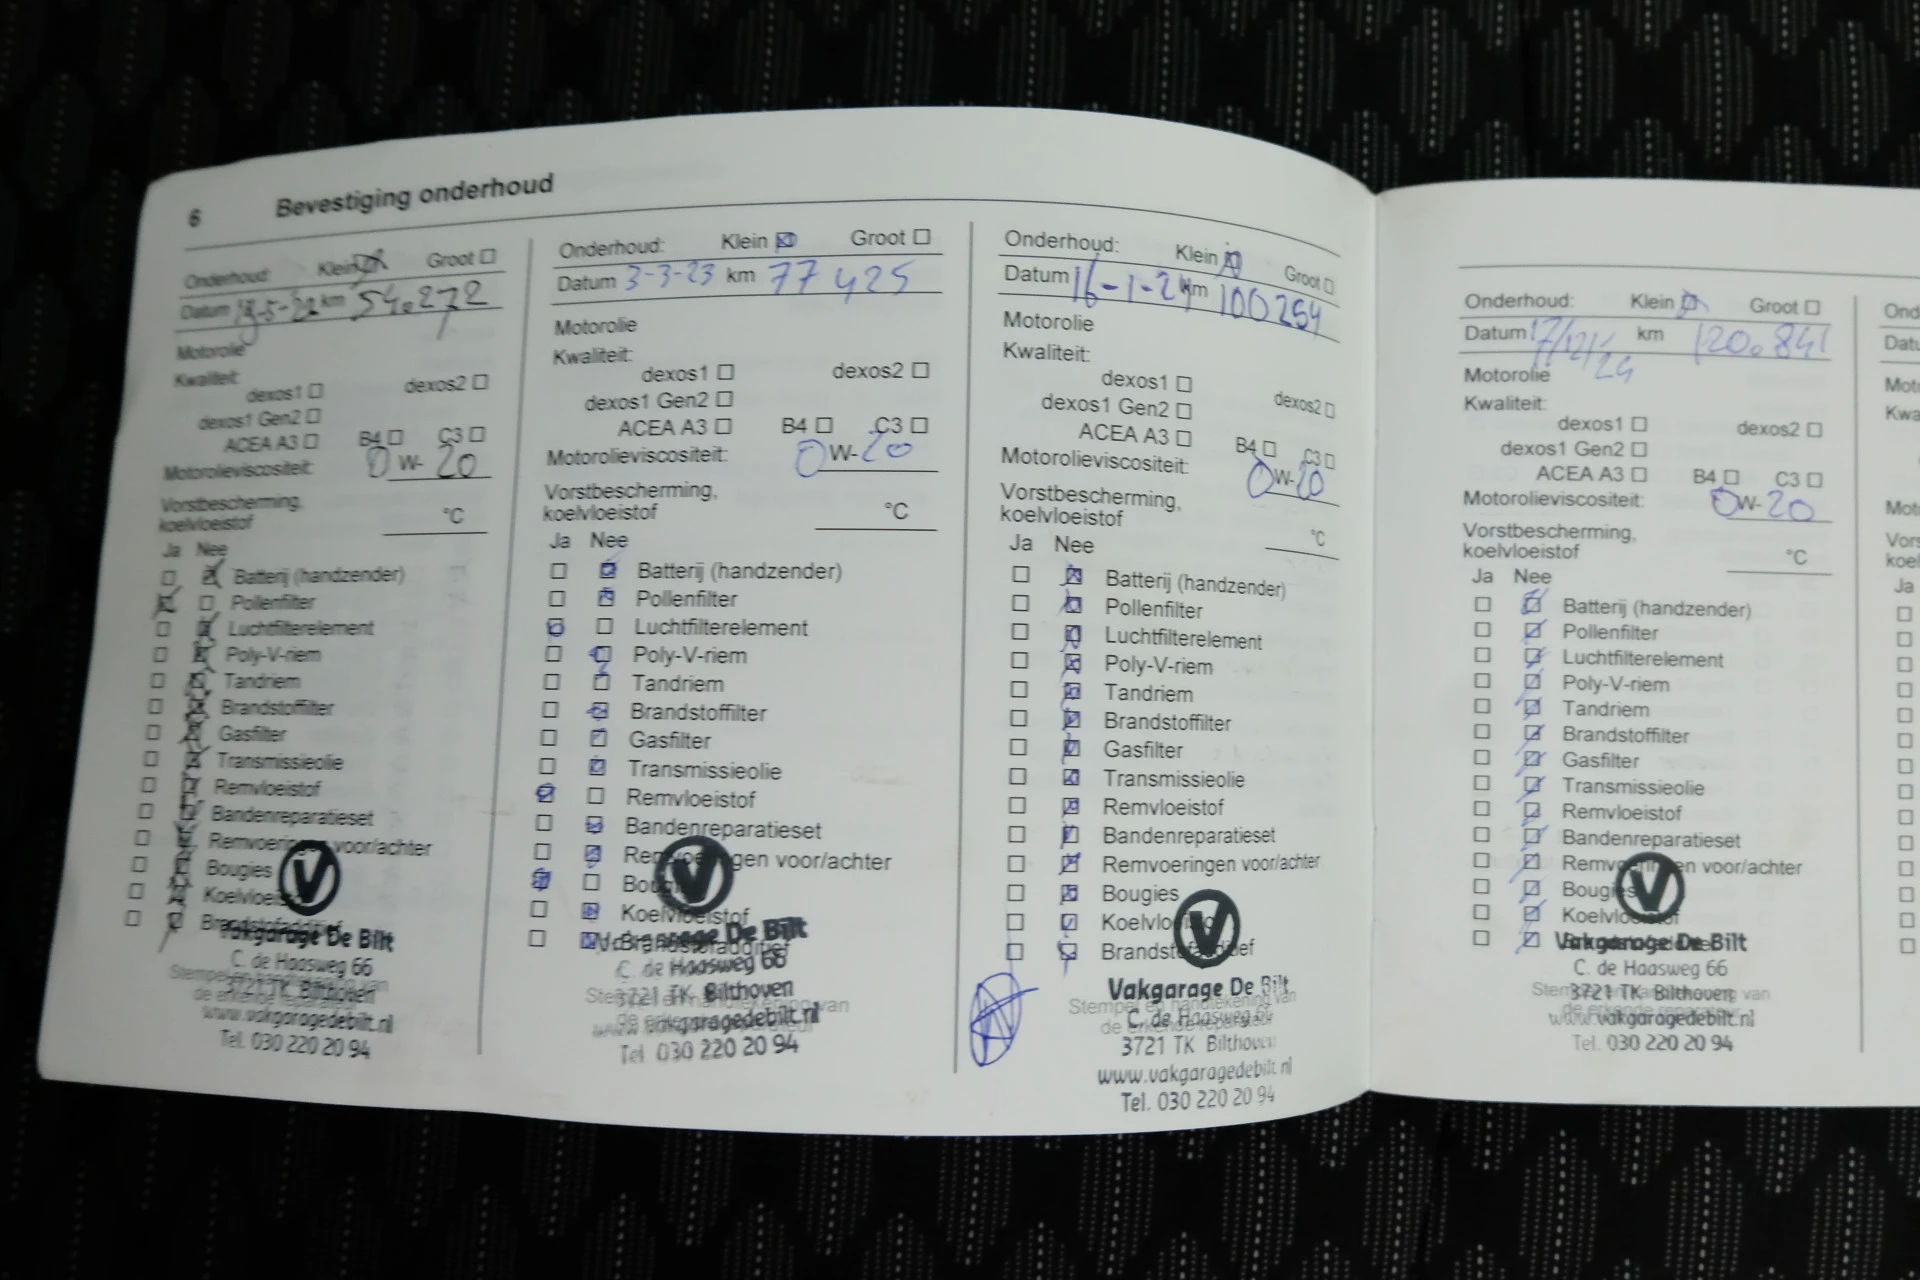 6 Bevestiging onderhoud
Onderhoud: Klein Groot
Datum km 54.272
Motorolie
Kwaliteit:
dexos1 dexos2
dexos1 Gen2
ACEA A3 B4 C3
Motorolieviscositeit: 0 W- 20
Vorstbescherming,
koelvloeistof °C
Ja Nee
Batterij (handzender)
Pollenfilter
Luchtfilterelement
Poly-V-riem
Tandriem
Brandstoffilter
Gasfilter
Transmissieolie
Remvloeistof
Bandenreparatieset
Remvoeringen voor/achter
Bougies
Koelvloeistof
Brandstofadditief
Vakgarage De Bilt
C. de Haasweg 66
3721 TK Bilthoven
www.vakgaragedebilt.nl
Tel. 030 220 20 94
Onderhoud: Klein Groot
Datum 3-3-23 km 77 425
Motorolie
Kwaliteit:
dexos1 dexos2
dexos1 Gen2
ACEA A3 B4 C3
Motorolieviscositeit: 0 W- 20
Vorstbescherming,
koelvloeistof °C
Ja Nee
Batterij (handzender)
Pollenfilter
Luchtfilterelement
Poly-V-riem
Tandriem
Brandstoffilter
Gasfilter
Transmissieolie
Remvloeistof
Bandenreparatieset
Remvoeringen voor/achter
Bougies
Koelvloeistof
Brandstofadditief
Vakgarage De Bilt
C. de Haasweg 66
3721 TK Bilthoven
Stempel en handtekening van
www.vakgaragedebilt.nl
Tel 030 220 20 94
Onderhoud: Klein Groot
Datum 16-1-24 km 100254
Motorolie
Kwaliteit:
dexos1 dexos2
dexos1 Gen2
ACEA A3 B4 C3
Motorolieviscositeit: 0 W- 20
Vorstbescherming,
koelvloeistof °C
Ja Nee
Batterij (handzender)
Pollenfilter
Luchtfilterelement
Poly-V-riem
Tandriem
Brandstoffilter
Gasfilter
Transmissieolie
Remvloeistof
Bandenreparatieset
Remvoeringen voor/achter
Bougies
Koelvloeistof
Brandstofadditief
Vakgarage De Bilt
Stempel en handtekening van
de erkende reparateur
C. de Haasweg 66
3721 TK Bilthoven
www.vakgaragedebilt.nl
Tel. 030 220 20 94
Onderhoud: Klein Groot
Datum 17/12/24 km 120.841
Motorolie
Kwaliteit:
dexos1 dexos2
dexos1 Gen2
ACEA A3 B4 C3
Motorolieviscositeit: 0 W- 20
Vorstbescherming,
koelvloeistof °C
Ja Nee
Batterij (handzender)
Pollenfilter
Luchtfilterelement
Poly-V-riem
Tandriem
Brandstoffilter
Gasfilter
Transmissieolie
Remvloeistof
Bandenreparatieset
Remvoeringen voor/achter
Bougies
Koelvloeistof
Vakgarage De Bilt
C. de Haasweg 66
3721 TK Bilthoven
www.vakgaragedebilt.nl
Tel. 030 220 20 94
Ond
Datu
Moto
Kwa
Moto
Vors
koel
Ja